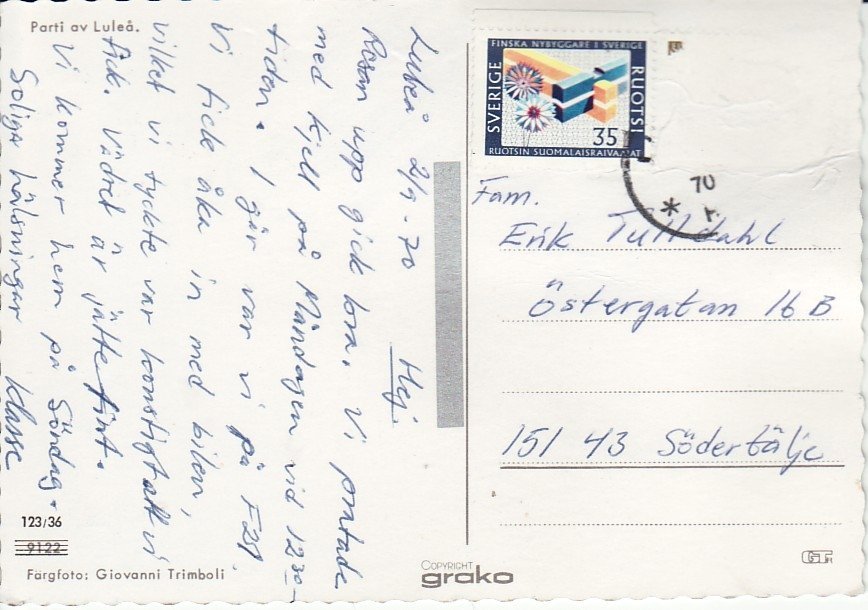 Parti av Luleå.
Luleå 2/9-70 Hej.
Resan upp gick bra. Vi pratade
med Kjell på Måndagen vid 12 30-
tiden. I går var vi på F21.
Vi fick åka in med bilen,
vilket vi tyckte var konstigt att vi
fick. Vädret är jättefint.
Vi kommer hem på Söndag.
Soliga hälsningar Klasse
123/36
9122
Färgfoto: Giovanni Trimboli
COPYRIGHT
grako
FINSKA NYBYGGARE I SVERIGE
SVERIGE
RUOTSI
35
RUOTSIN SUOMALAISRAIVAAJAT
70
Fam.
Erik Tulldahl
Östergatan 16 B
151 43 Södertälje